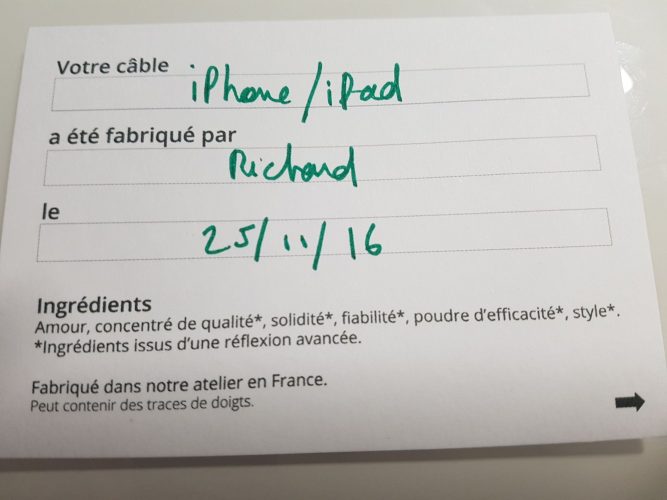 Votre câble
iPhone/iPad
a été fabriqué par
Richard
le
25/11/16
Ingrédients
Amour, concentré de qualité*, solidité*, fiabilité*, poudre d'efficacité*, style*.
*Ingrédients issus d'une réflexion avancée.
Fabriqué dans notre atelier en France.
Peut contenir des traces de doigts.